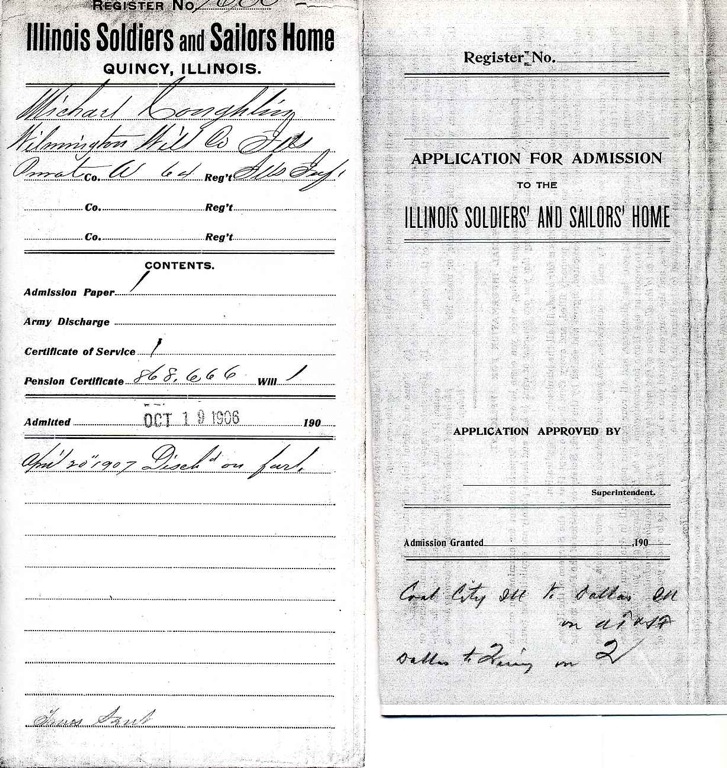 REGISTER No.
Illinois Soldiers and Sailors Home
QUINCY, ILLINOIS.
Michael Coughlin
Wilmington Will Co Ills
Private Co. A 64 Reg't Ills Inf.
Co. Reg't
Co. Reg't
CONTENTS.
Admission Paper 1
Army Discharge
Certificate of Service 1
Pension Certificate 868,666 Will 1
Admitted OCT 19 1906 190
April 20" 1907 Disch'd on furl.
Register No.
APPLICATION FOR ADMISSION
TO THE
ILLINOIS SOLDIERS' AND SAILORS' HOME
APPLICATION APPROVED BY
Superintendent.
Admission Granted ,190
Coal City Ill to Dallas
on
Dallas to Quincy on 2